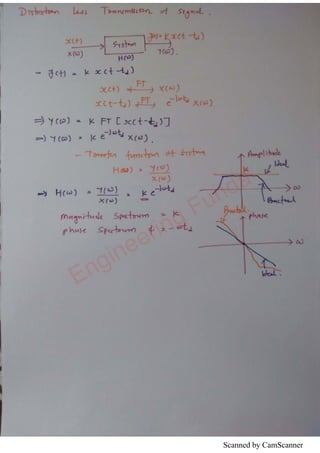 Distortion less Transmission of signal.
x(t) System y(t)= k x(t-td)
X(ω) H(ω) Y(ω).
- y(t) = k x(t-td)
x(t) FT X(ω)
x(t-td) FT e^-jωtd X(ω)
⇒ Y(ω) = k FT [x(t-td)]
⇒ Y(ω) = k e^-jωtd X(ω).
- Transfer function of system
H(ω) = Y(ω)/X(ω)
⇒ H(ω) = Y(ω)/X(ω) = k e^-jωtd
magnitude spectrum = k
phase spectrum is -ωtd
Amplitude
Ideal
k
ω
Practical
Practical
phase
ω
Ideal.
Engineering Funda
Scanned by CamScanner